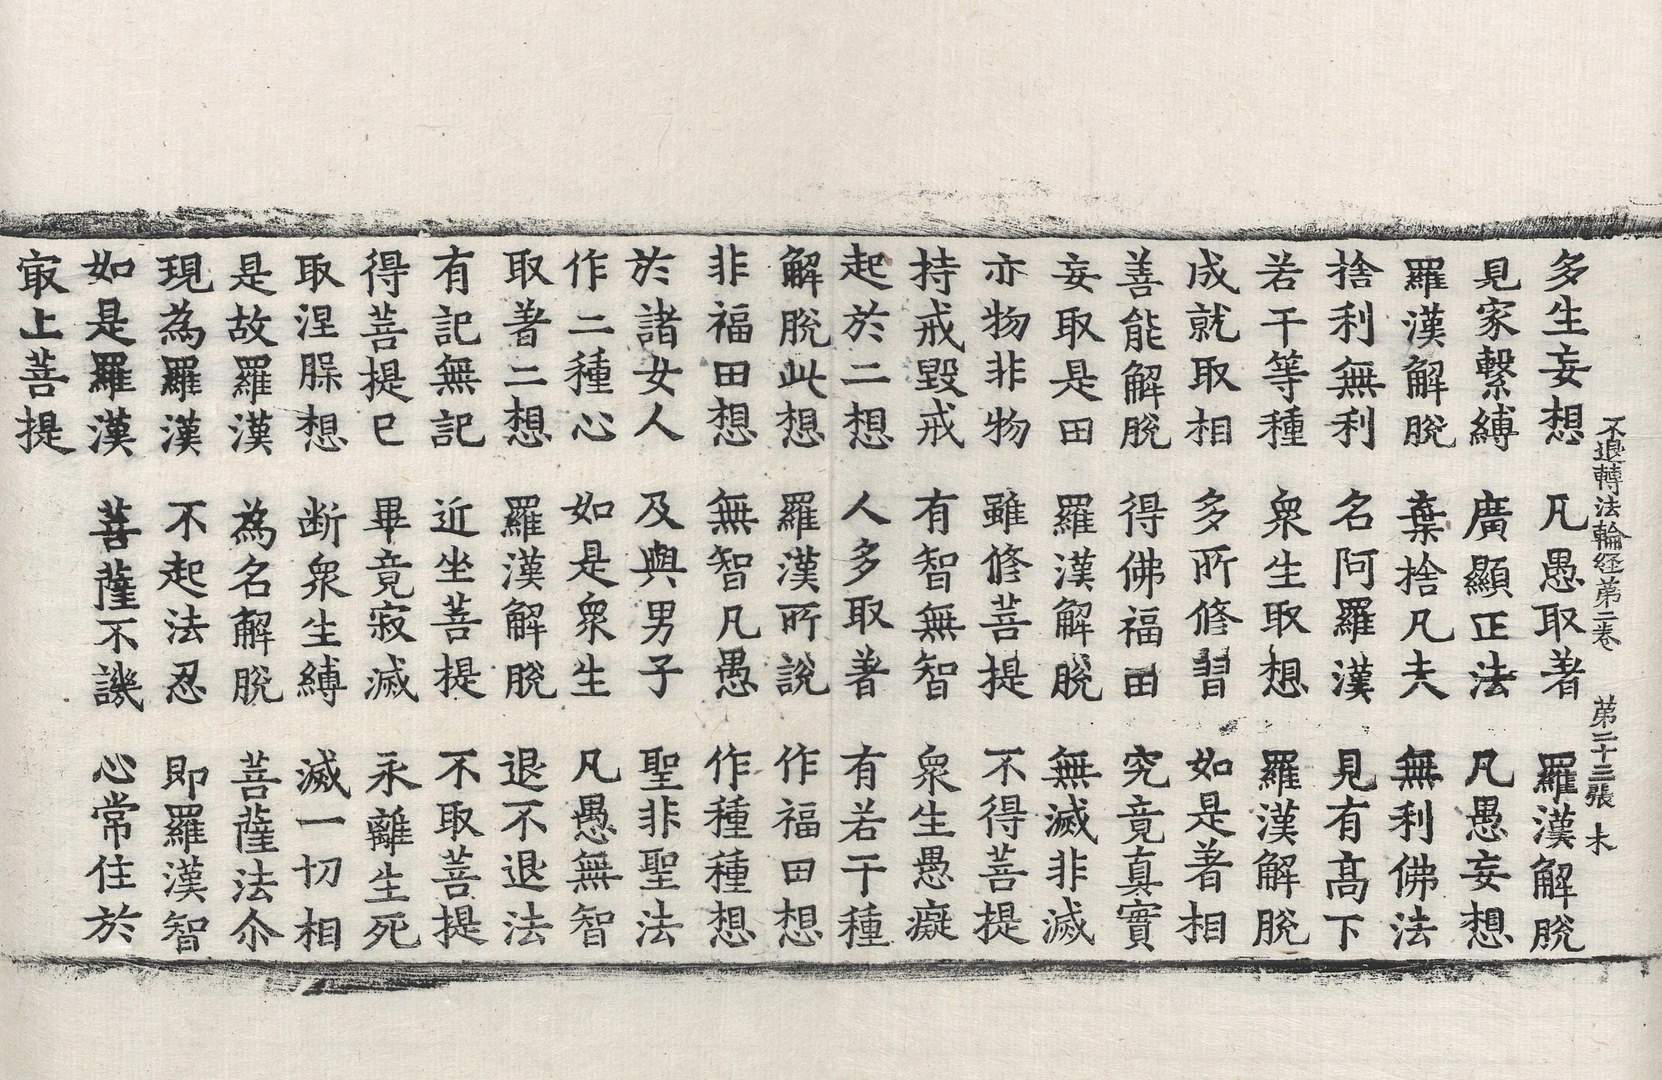 不退轉法輪経第二卷　第二十三張　木
多生妄想　凡愚取著　羅漢解脫
見家繫縛　廣顯正法　凡愚妄想
羅漢解脫　棄捨凡夫　無利佛法
捨利無利　名阿羅漢　見有高下
若干等種　衆生取想　羅漢解脫
成就取相　多所修習　如是著相
善能解脫　得佛福田　究竟真實
妄取是田　羅漢解脫　無滅非滅
亦物非物　雖修菩提　不得菩提
持戒毀戒　有智無智　衆生愚癡
起於二想　人多取著　有若干種
解脫此想　羅漢所說　作福田想
非福田想　無智凡愚　作種種想
於諸女人　及與男子　聖非聖法
作二種心　如是衆生　凡愚無智
取著二想　羅漢解脫　退不退法
有記無記　近坐菩提　不取菩提
得菩提已　畢竟寂滅　永離生死
取涅槃想　断衆生縛　滅一切相
是故羅漢　為名解脫　菩薩法尒
現為羅漢　不起法忍　即羅漢智
如是羅漢　菩薩不譏　心常住於
㝡上菩提